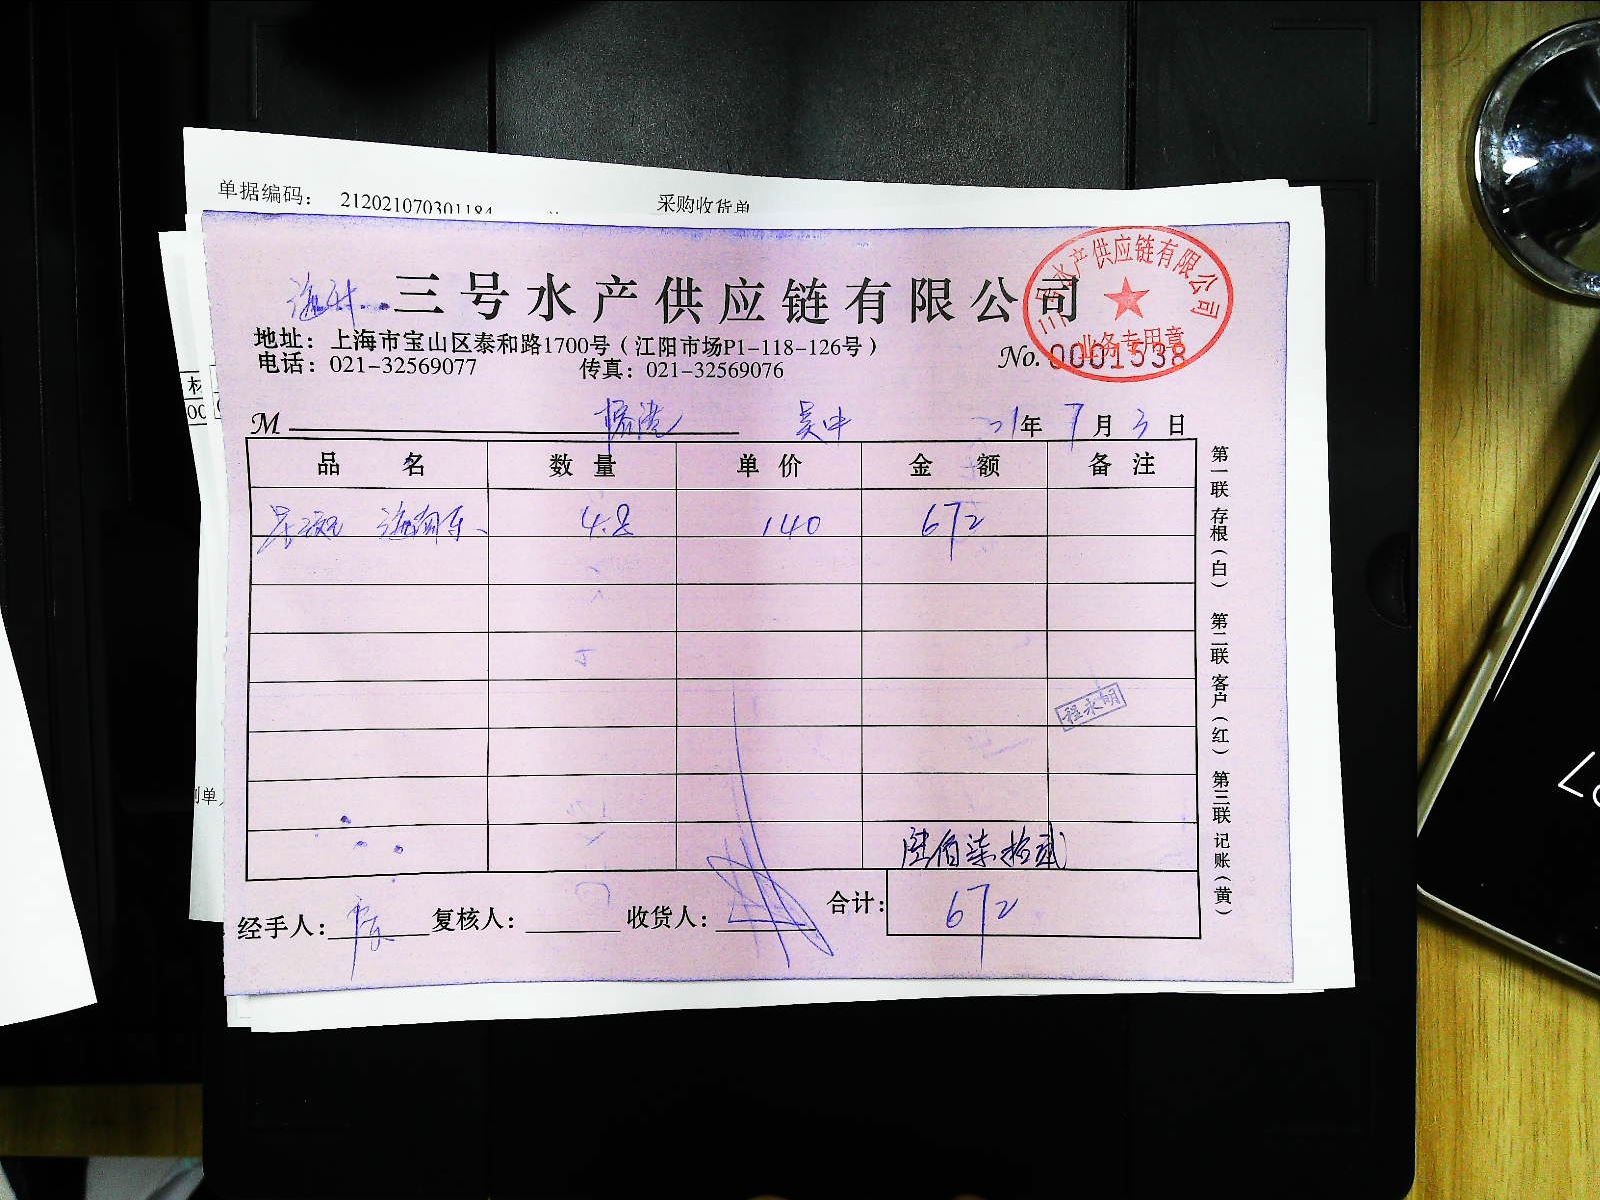 单据编码： 212021070301184 采购收货单
三号水产供应链有限公司
三号水产供应链有限公司
业务专用章
地址：上海市宝山区泰和路1700号（江阳市场P1-118-126号）
电话：021-32569077 传真：021-32569076
No. 0001538
M 吴中 21年 7月 3日
品名 数量 单价 金额 备注
4.8 140 672
程永明
陆佰柒拾贰
经手人： 复核人： 收货人： 合计： 672
第一联 存根（白） 第二联 客户（红） 第三联 记账（黄）